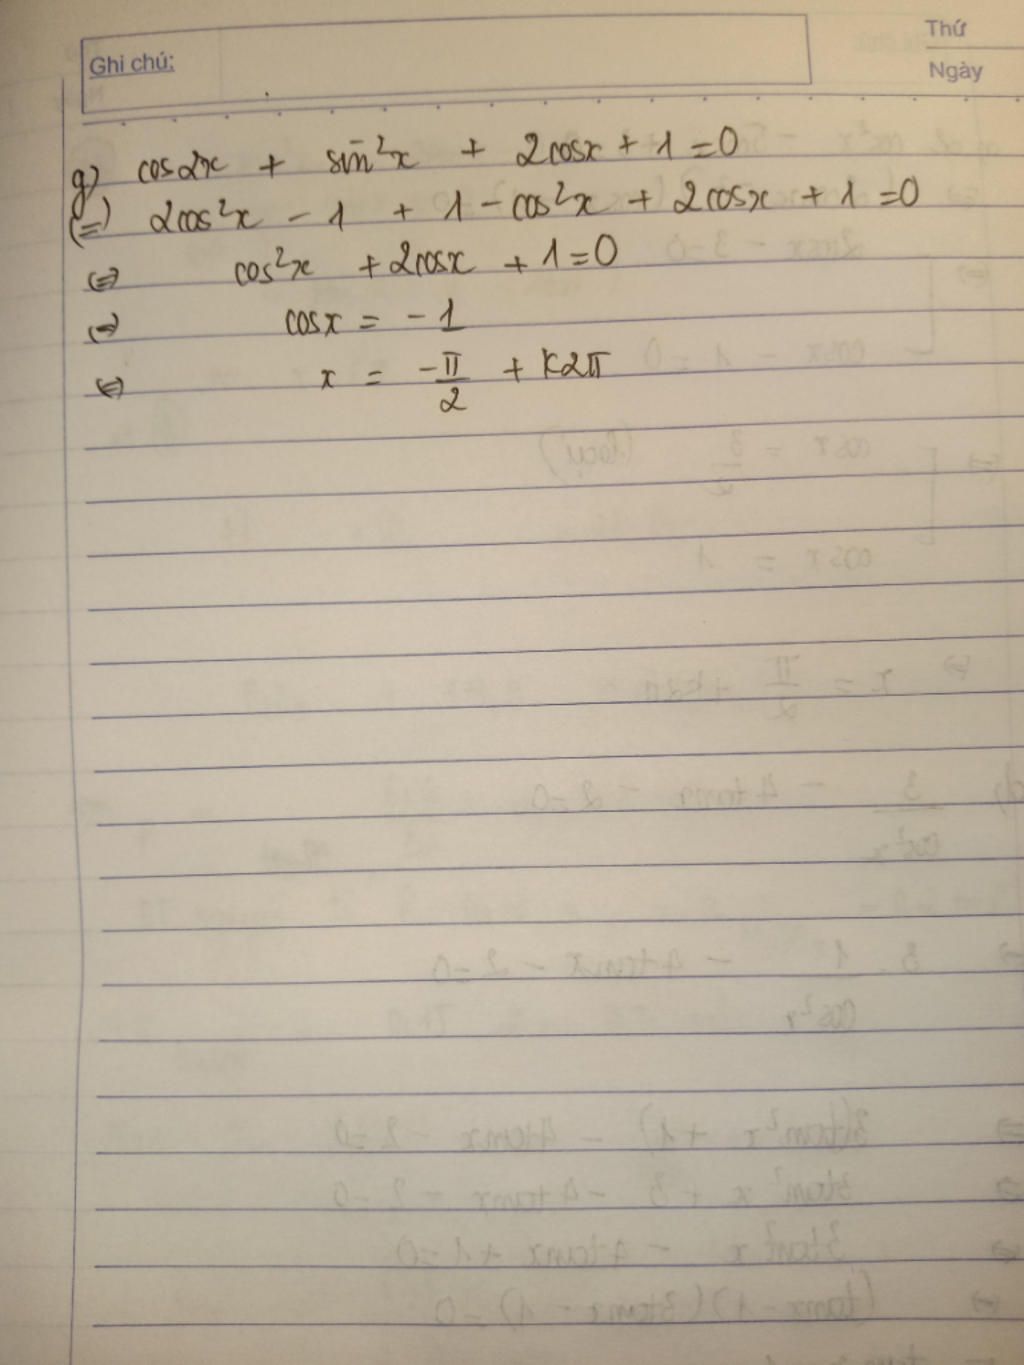 Thứ
Ghi chú:
Ngày
g) cos2x + sin²x + 2cosx + 1 = 0
(=) 2cos²x - 1 + 1 - cos²x + 2cosx + 1 = 0
⇔ cos²x + 2cosx + 1 = 0
⇔ cosx = -1
⇔ x = -π/2 + k2π